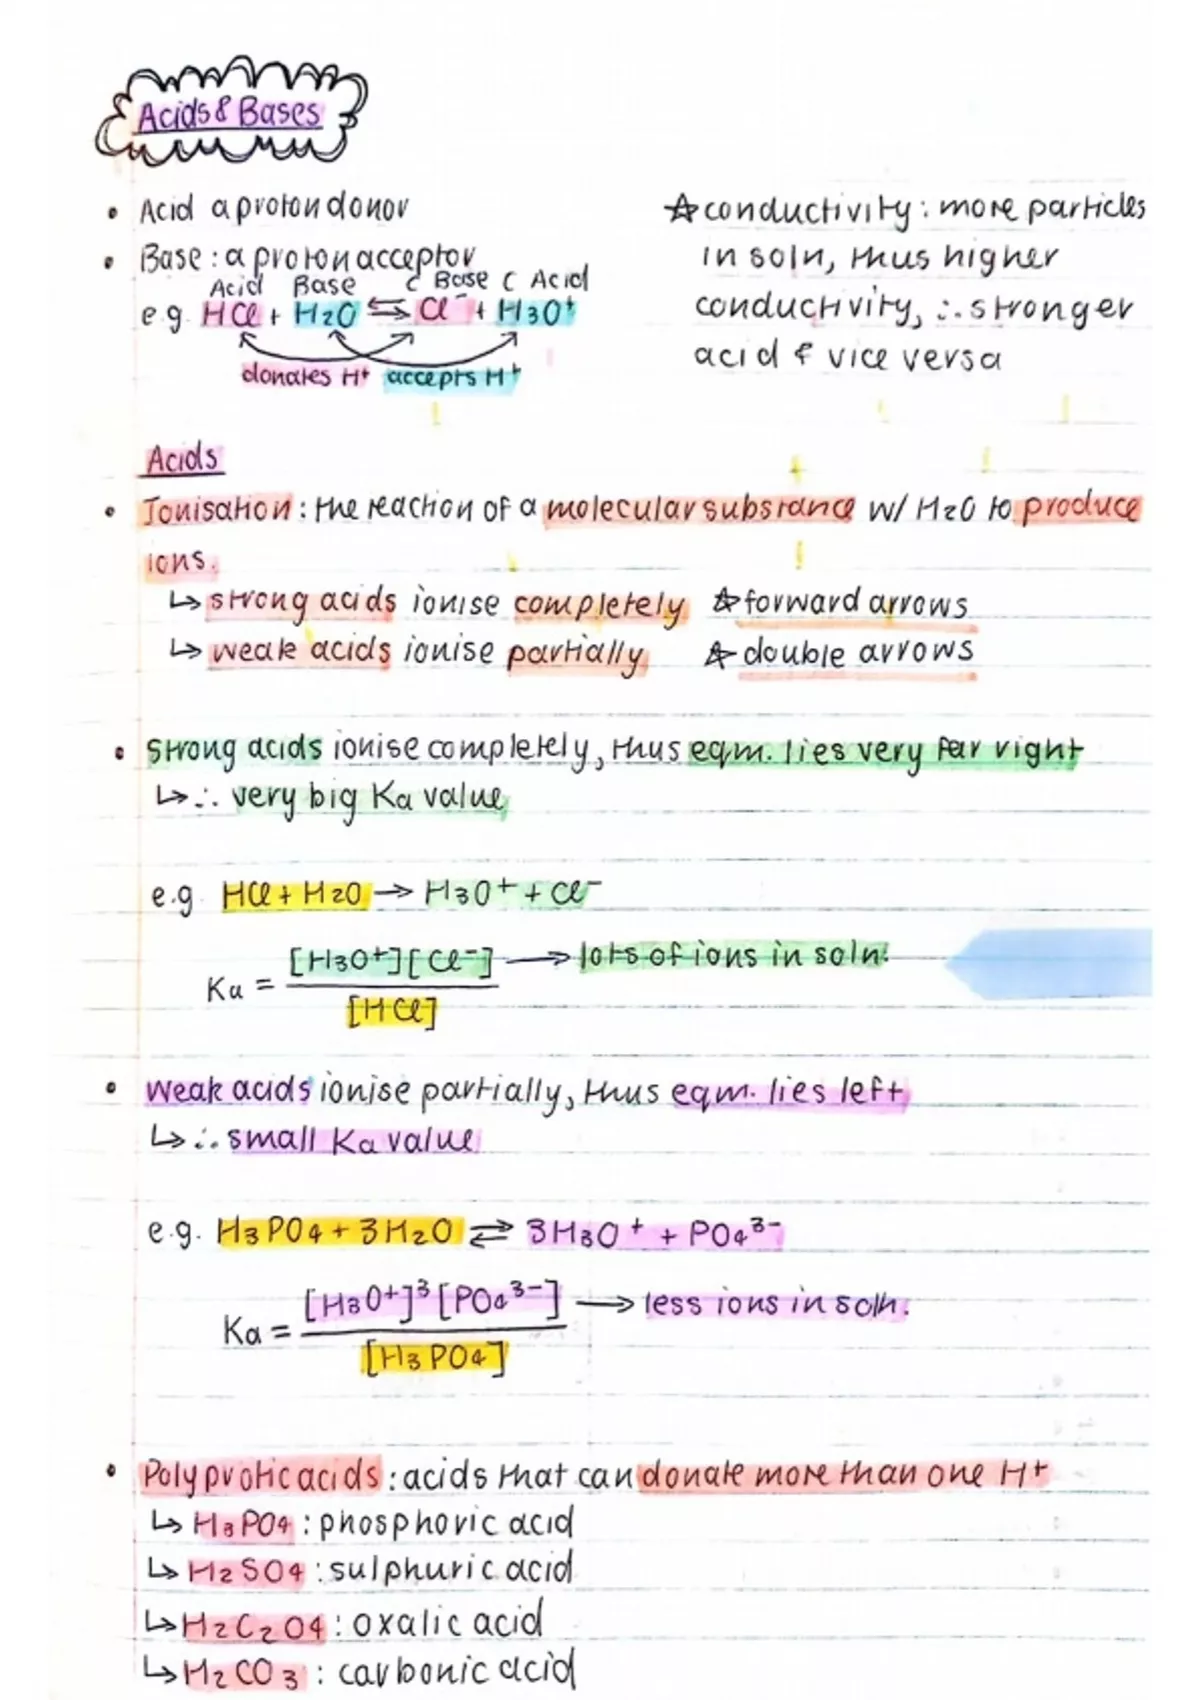 Acids & Bases
• Acid a proton donor
• Base : a proton acceptor
Acid Base C Base C Acid
e.g. HCl + H2O ⇆ Cl⁻ + H3O⁺
donates H⁺ accepts H⁺
☆ conductivity : more particles
in soln, thus higher
conductivity, ∴ stronger
acid & vice versa
Acids
• Ionisation : the reaction of a molecular substance w/ H2O to produce
ions.
↳ strong acids ionise completely ☆ forward arrows
↳ weak acids ionise partially ☆ double arrows
• Strong acids ionise completely, thus eqm. lies very far right
↳ ∴ very big Ka value
e.g. HCl + H2O → H3O⁺ + Cl⁻
Ka = [H3O⁺][Cl⁻] → lots of ions in soln.
[HCl]
• Weak acids ionise partially, thus eqm. lies left
↳ ∴ small Ka value
e.g. H3PO4 + 3H2O ⇌ 3H3O⁺ + PO4³⁻
Ka = [H3O⁺]³[PO4³⁻] → less ions in soln.
[H3PO4]
• Polyprotic acids : acids that can donate more than one H⁺
↳ H3PO4 : phosphoric acid
↳ H2SO4 : sulphuric acid
↳ H2C2O4 : oxalic acid
↳ H2CO3 : carbonic acid